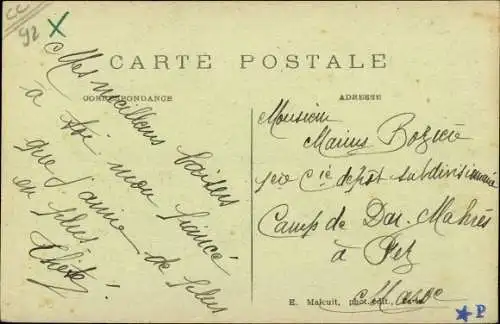 CC
92
CARTE POSTALE
CORRESPONDANCE
ADRESSE
Mes meilleurs baisers
à toi mon fiancé
que j'aime de plus
en plus
Monsieur
Marius
1ère Cie dépôt subdivisionnaire
Camp de Dar-Mahrès
à Fez
Maroc
E. Malcuit, phot.-édit.,
P